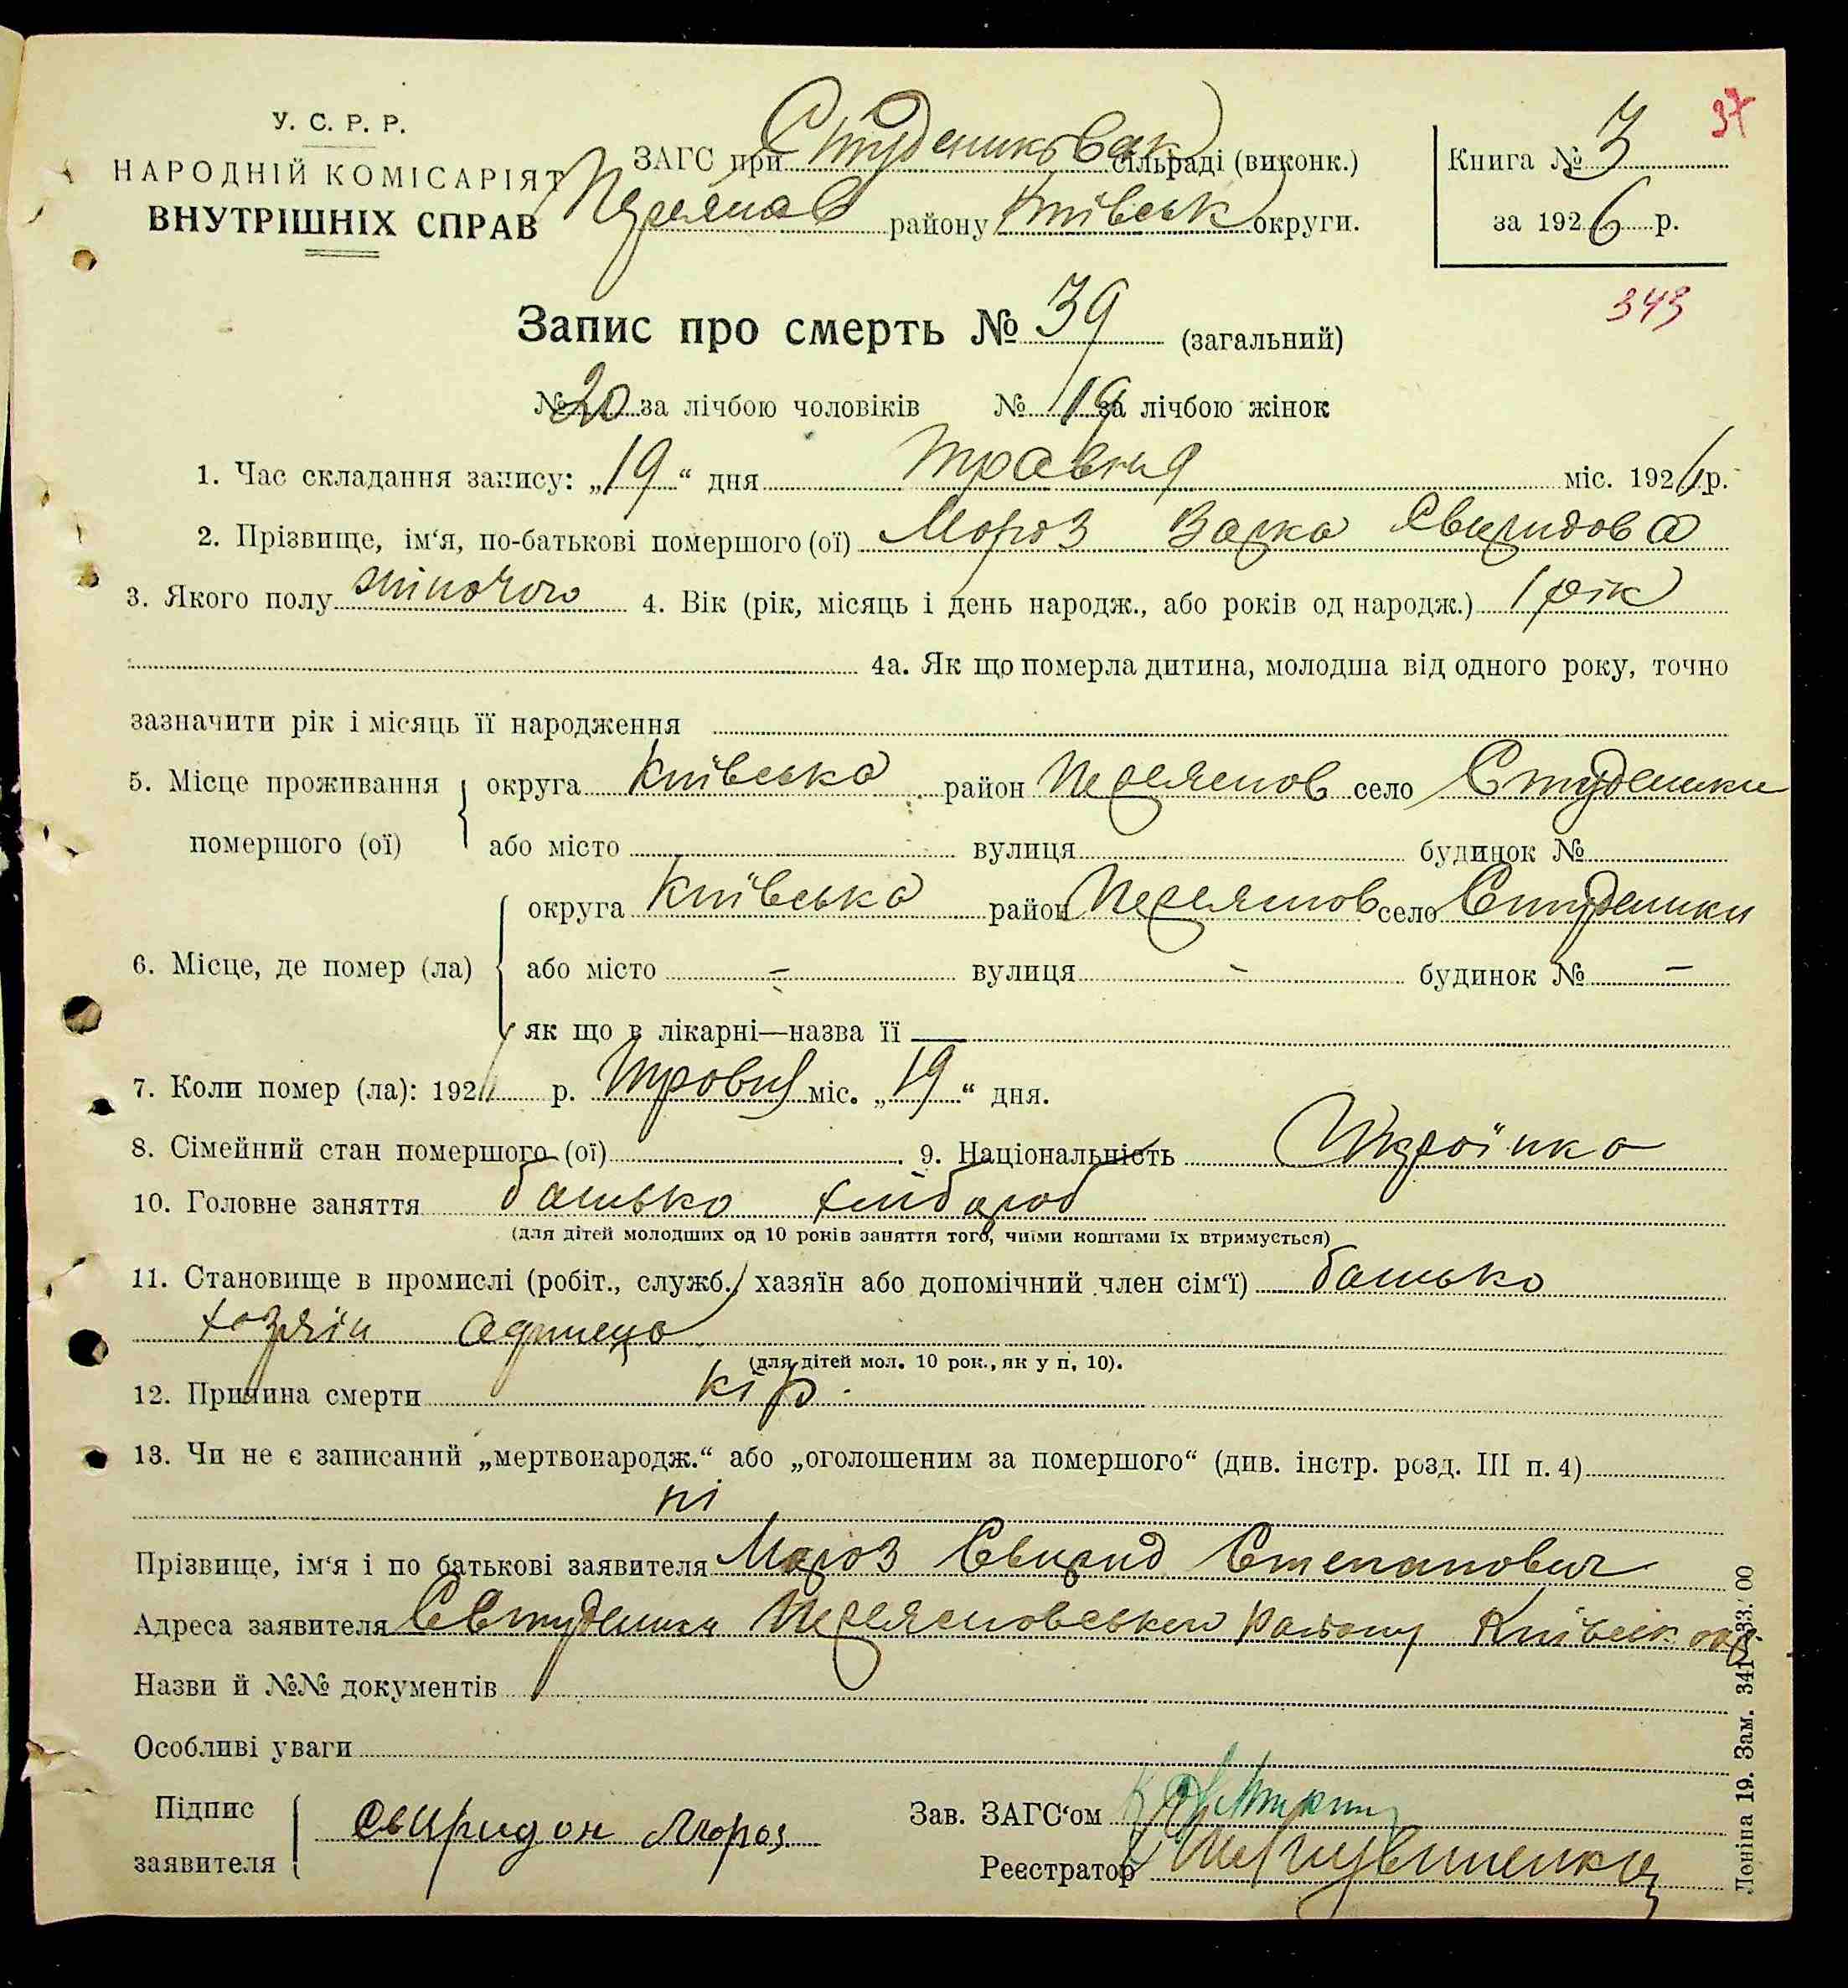 У. С. Р. Р.
НАРОДНІЙ КОМІСАРІЯТ
ВНУТРІШНІХ СПРАВ
ЗАГС при Студениковськ сільраді (виконк.)
Переяслав району Київськ округи.
Книга № 3
за 1926 р.
37
343
Запис про смерть № 39 (загальний)
№ 20 за лічбою чоловіків № 19 за лічбою жінок
1. Час складання запису: „19“ дня травня міс. 1926 р.
2. Прізвище, ім‘я, по-батькові помершого (ої) Мороз Варка Свиридова
3. Якого полу жіночого 4. Вік (рік, місяць і день народж., або років од народж.) 1 рік
4а. Як що померла дитина, молодша від одного року, точно
зазначити рік і місяць її народження
5. Місце проживання помершого (ої) округа Київська район Переяслов село Студеники
або місто вулиця будинок №
6. Місце, де помер (ла) округа Київська район Переяслов село Студеники
або місто – вулиця – будинок № –
як що в лікарні—назва її —
7. Коли помер (ла): 192 р. Тровня міс. „19“ дня.
8. Сімейний стан помершого (ої) 9. Національність Україінка
10. Головне заняття батько хлібороб
(для дітей молодших од 10 років заняття того, чиїми коштами їх втримується)
11. Становище в промислі (робіт., служб., хазяїн або допомічний член сім‘ї) батько
хозяїн
(для дітей мол. 10 рок., як у п, 10).
12. Причина смерти кір.
13. Чи не є записаний „мертвонародж.“ або „оголошеним за помершого“ (див. інстр. розд. III п. 4)
ні
Прізвище, ім‘я і по батькові заявителя Мороз Свирид Степанович
Адреса заявителя Студеники Переясловського району Київськ окр.
Назви й №№ документів
Особливі уваги
Підпис заявителя Свиридон Мороз
Зав. ЗАГС‘ом
Реєстратор
19. Зам. 341